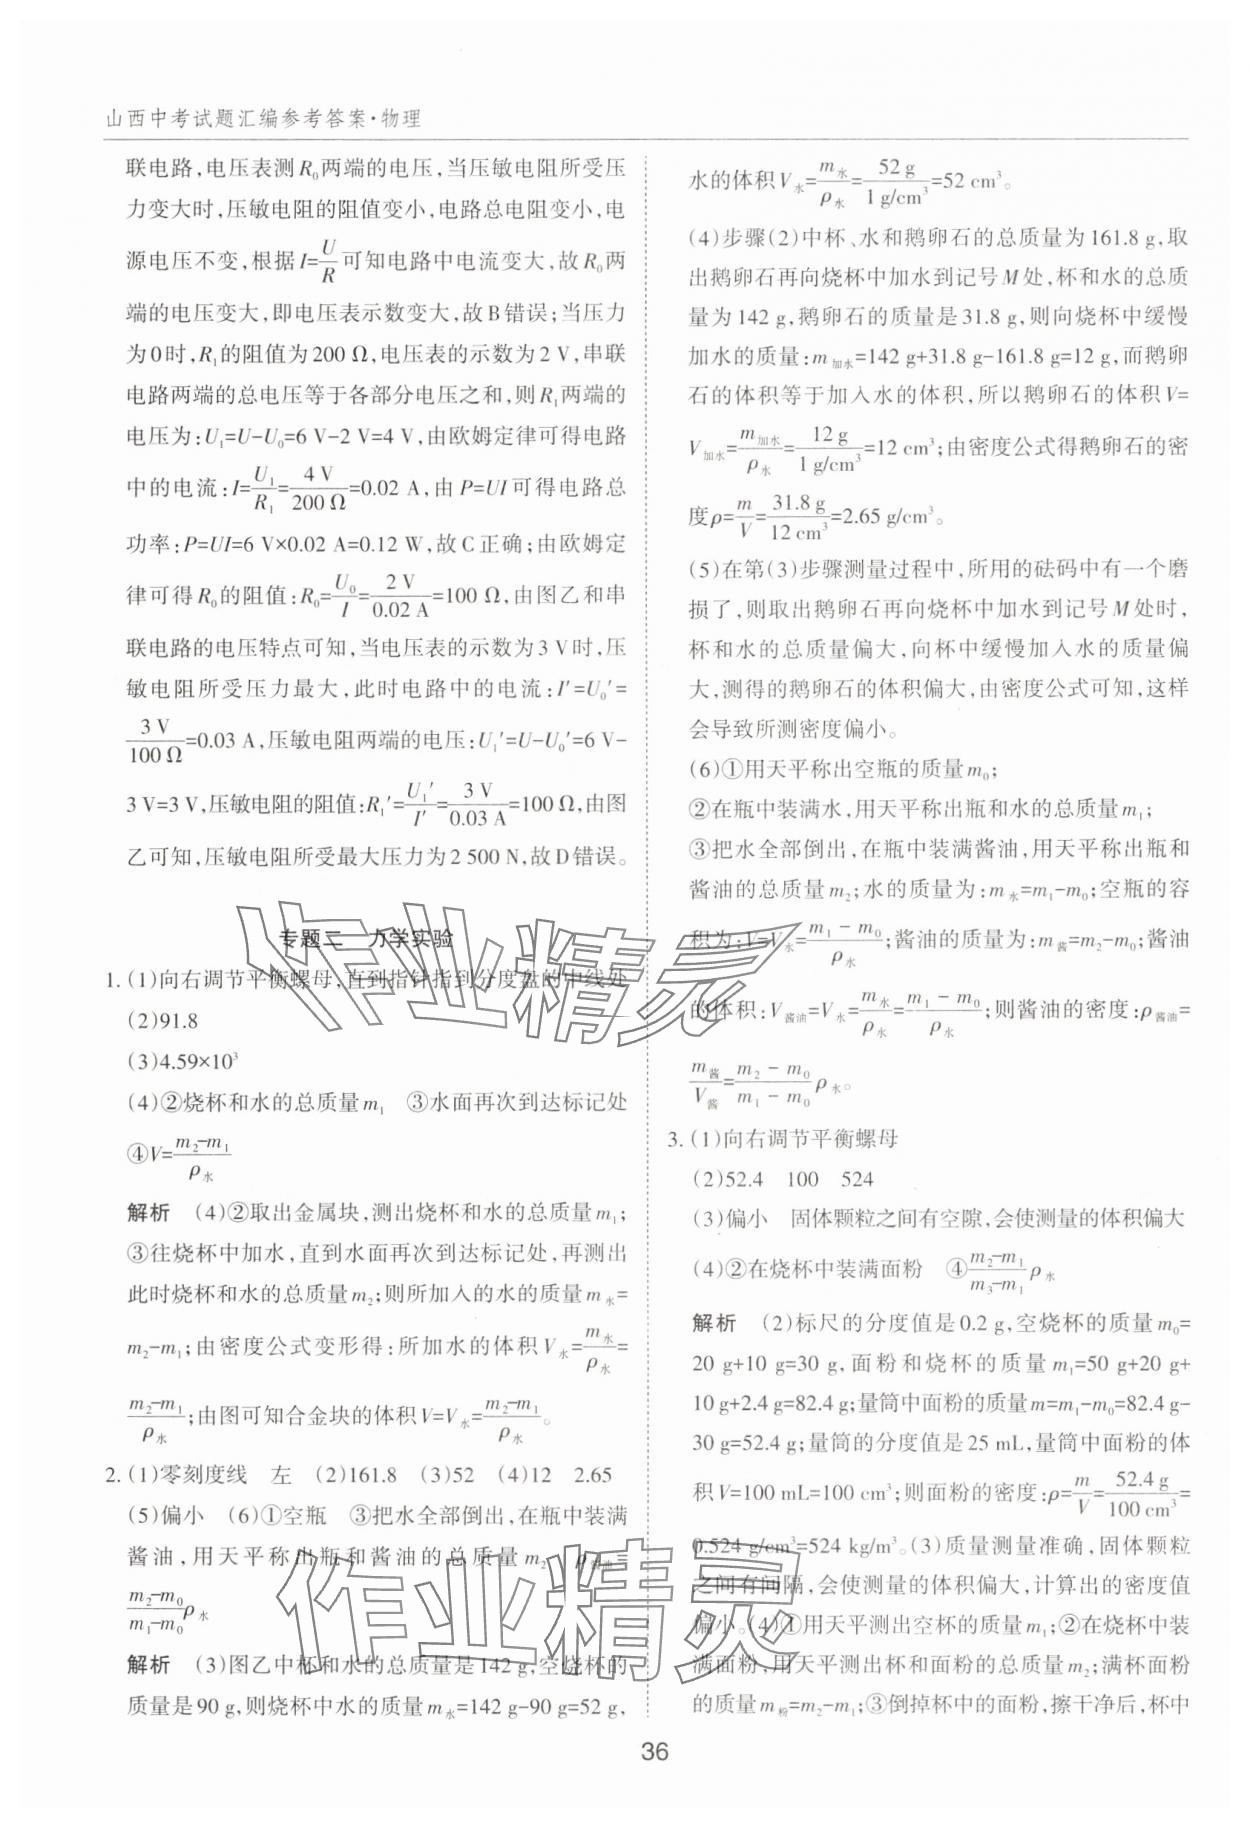 山西中考试题汇编参考答案·物理
联电路,电压表测R₀两端的电压,当压敏电阻所受压
力变大时,压敏电阻的阻值变小,电路总电阻变小,电
源电压不变,根据I=U/R可知电路中电流变大,故R₀两
端的电压变大,即电压表示数变大,故B错误;当压力
为0时,R₁的阻值为200 Ω,电压表的示数为2 V,串联
电路两端的总电压等于各部分电压之和,则R₁两端的
电压为:U₁=U-U₀=6 V-2 V=4 V,由欧姆定律可得电路
中的电流:I=U₁/R₁=4 V/200 Ω=0.02 A,由P=UI可得电路总
功率:P=UI=6 V×0.02 A=0.12 W,故C正确;由欧姆定
律可得R₀的阻值:R₀=U₀/I=2 V/0.02 A=100 Ω,由图乙和串
联电路的电压特点可知,当电压表的示数为3 V时,压
敏电阻所受压力最大,此时电路中的电流:I′=U₀′=
3 V/100 Ω=0.03 A,压敏电阻两端的电压:U₁′=U-U₀′=6 V-
3 V=3 V,压敏电阻的阻值:R₁′=U₁′/I′=3 V/0.03 A=100 Ω,由图
乙可知,压敏电阻所受最大压力为2 500 N,故D错误。
专题二 力学实验
1.(1)向右调节平衡螺母,直到指针指到分度盘的中线处
(2)91.8
(3)4.59×10³
(4)②烧杯和水的总质量m₁ ③水面再次到达标记处
④V=(m₂-m₁)/ρ水
解析 (4)②取出金属块,测出烧杯和水的总质量m₁;
③往烧杯中加水,直到水面再次到达标记处,再测出
此时烧杯和水的总质量m₂;则所加入的水的质量m水=
m₂-m₁;由密度公式变形得:所加水的体积V水=m水/ρ水=
(m₂-m₁)/ρ水;由图可知合金块的体积V=V水=(m₂-m₁)/ρ水。
2.(1)零刻度线 左 (2)161.8 (3)52 (4)12 2.65
(5)偏小 (6)①空瓶 ③把水全部倒出,在瓶中装满
酱油,用天平称出瓶和酱油的总质量m₂ ρ酱油=
(m₂-m₀)/(m₁-m₀)ρ水
解析 (3)图乙中杯和水的总质量是142 g,空烧杯的
质量是90 g,则烧杯中水的质量m水=142 g-90 g=52 g,
水的体积V水=m水/ρ水=52 g/1 g/cm³=52 cm³。
(4)步骤(2)中杯、水和鹅卵石的总质量为161.8 g,取
出鹅卵石再向烧杯中加水到记号M处,杯和水的总质
量为142 g,鹅卵石的质量是31.8 g,则向烧杯中缓慢
加水的质量:m加水=142 g+31.8 g-161.8 g=12 g,而鹅卵
石的体积等于加入水的体积,所以鹅卵石的体积V=
V加水=m加水/ρ水=12 g/1 g/cm³=12 cm³;由密度公式得鹅卵石的密
度ρ=m/V=31.8 g/12 cm³=2.65 g/cm³。
(5)在第(3)步骤测量过程中,所用的砝码中有一个磨
损了,则取出鹅卵石再向烧杯中加水到记号M处时,
杯和水的总质量偏大,向杯中缓慢加入水的质量偏
大,测得的鹅卵石的体积偏大,由密度公式可知,这样
会导致所测密度偏小。
(6)①用天平称出空瓶的质量m₀;
②在瓶中装满水,用天平称出瓶和水的总质量m₁;
③把水全部倒出,在瓶中装满酱油,用天平称出瓶和
酱油的总质量m₂;水的质量为:m水=m₁-m₀;空瓶的容
积为:V=V水=(m₁-m₀)/ρ水;酱油的质量为:m酱=m₂-m₀;酱油
的体积:V酱油=V水=m水/ρ水=(m₁-m₀)/ρ水;则酱油的密度:ρ酱油=
m酱/V酱=(m₂-m₀)/(m₁-m₀)ρ水。
3.(1)向右调节平衡螺母
(2)52.4 100 524
(3)偏小 固体颗粒之间有空隙,会使测量的体积偏大
(4)②在烧杯中装满面粉 ④(m₂-m₁)/(m₃-m₁)ρ水
解析 (2)标尺的分度值是0.2 g,空烧杯的质量m₀=
20 g+10 g=30 g,面粉和烧杯的质量m₁=50 g+20 g+
10 g+2.4 g=82.4 g;量筒中面粉的质量m=m₁-m₀=82.4 g-
30 g=52.4 g;量筒的分度值是25 mL,量筒中面粉的体
积V=100 mL=100 cm³;则面粉的密度:ρ=m/V=52.4 g/100 cm³=
0.524 g/cm³=524 kg/m³。(3)质量测量准确,固体颗粒
之间有间隔,会使测量的体积偏大,计算出的密度值
偏小。(4)①用天平测出空杯的质量m₁;②在烧杯中装
满面粉,用天平测出杯和面粉的总质量m₂;满杯面粉
的质量m粉=m₂-m₁;③倒掉杯中的面粉,擦干净后,杯中
36
作业精灵
作业精灵